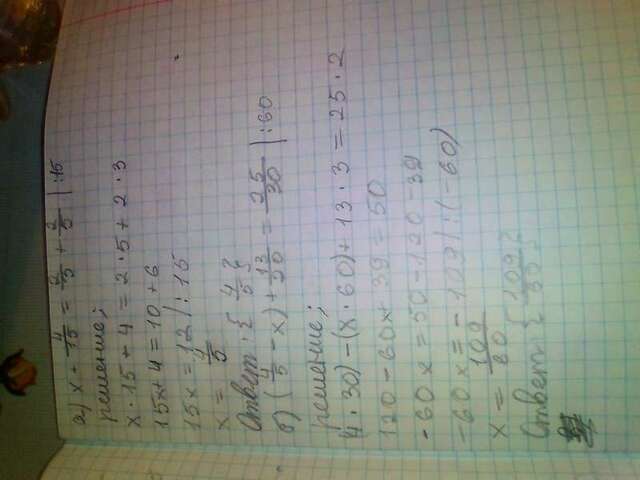 а) x + 4/15 = 2/3 + 2/5 | :15
решение;
x · 15 + 4 = 2 · 5 + 2 · 3
15x + 4 = 10 + 6
15x = 12 | : 15
x = 4/5
Ответ: {4/5}
б) (4/5 - x) + 13/20 = 25/30 | : 60
решение;
(4 · 30) - (x · 60) + 13 · 3 = 25 · 2
120 - 60x + 39 = 50
-60x = 50 - 120 - 39
-60x = -109 | : (-60)
x = 109/60
Ответ: {109/60}